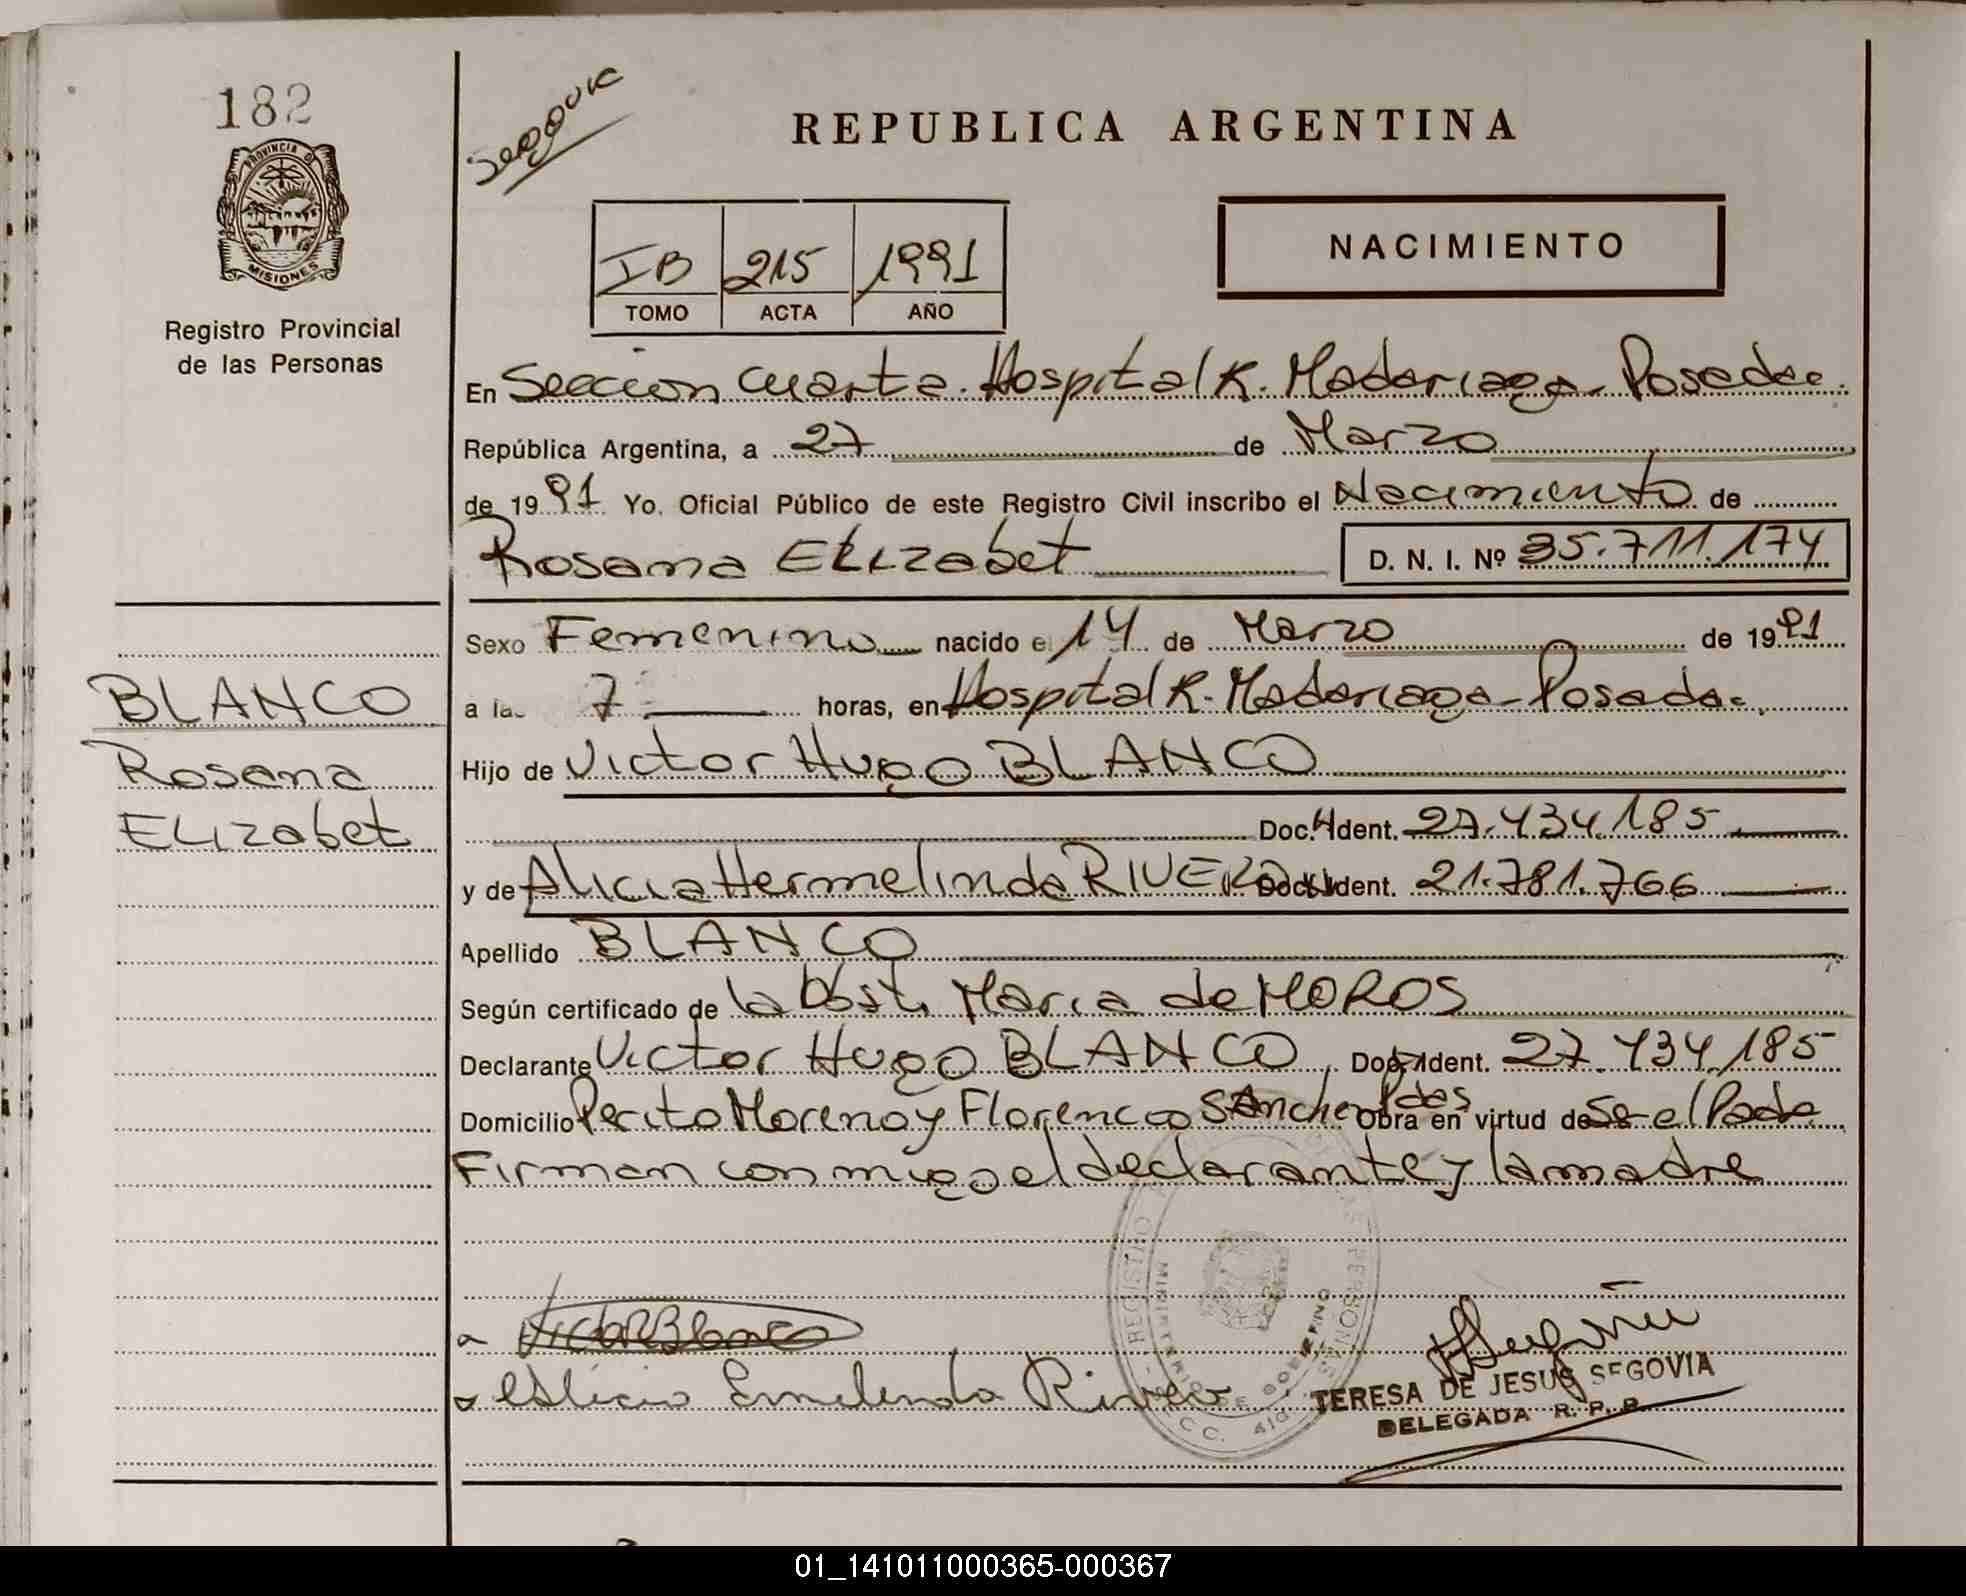 182
PROVINCIA DE
MISIONES
Registro Provincial
de las Personas
BLANCO
Rosana
ELizabet
REPUBLICA ARGENTINA
NACIMIENTO
IB 215 1991
TOMO ACTA AÑO
En Seccion Cuarta. Hospital R. Madariaga - Posadas.
República Argentina, a 27 de Marzo
de 1991 Yo, Oficial Público de este Registro Civil inscribo el Nacimiento de
Rosana ELizabet D. N. I. Nº 35.711.174
Sexo Femenino nacido el 14 de Marzo de 1991
a las 7 horas, en Hospital R. Madariaga - Posadas.
Hijo de Victor Hugo BLANCO
Doc. Ident. 27.434.185
y de Alicia Hermelinda RIVERO Doc. Ident. 21.781.766
Apellido BLANCO
Según certificado de la Obst. Maria de MOROS
Declarante Victor Hugo BLANCO Doc. Ident. 27.434.185
Domicilio Perito Moreno y Florencio Sánchez Pdas Obra en virtud de Ser el Padre
Firman conmigo el declarante y la madre
Victor Blanco
Ermelinda Rivero
REGISTRO PERSONAS
MINISTERIO DE GOBIERNO
TERESA DE JESUS SEGOVIA
DELEGADA R. P. P.
01_141011000365-000367